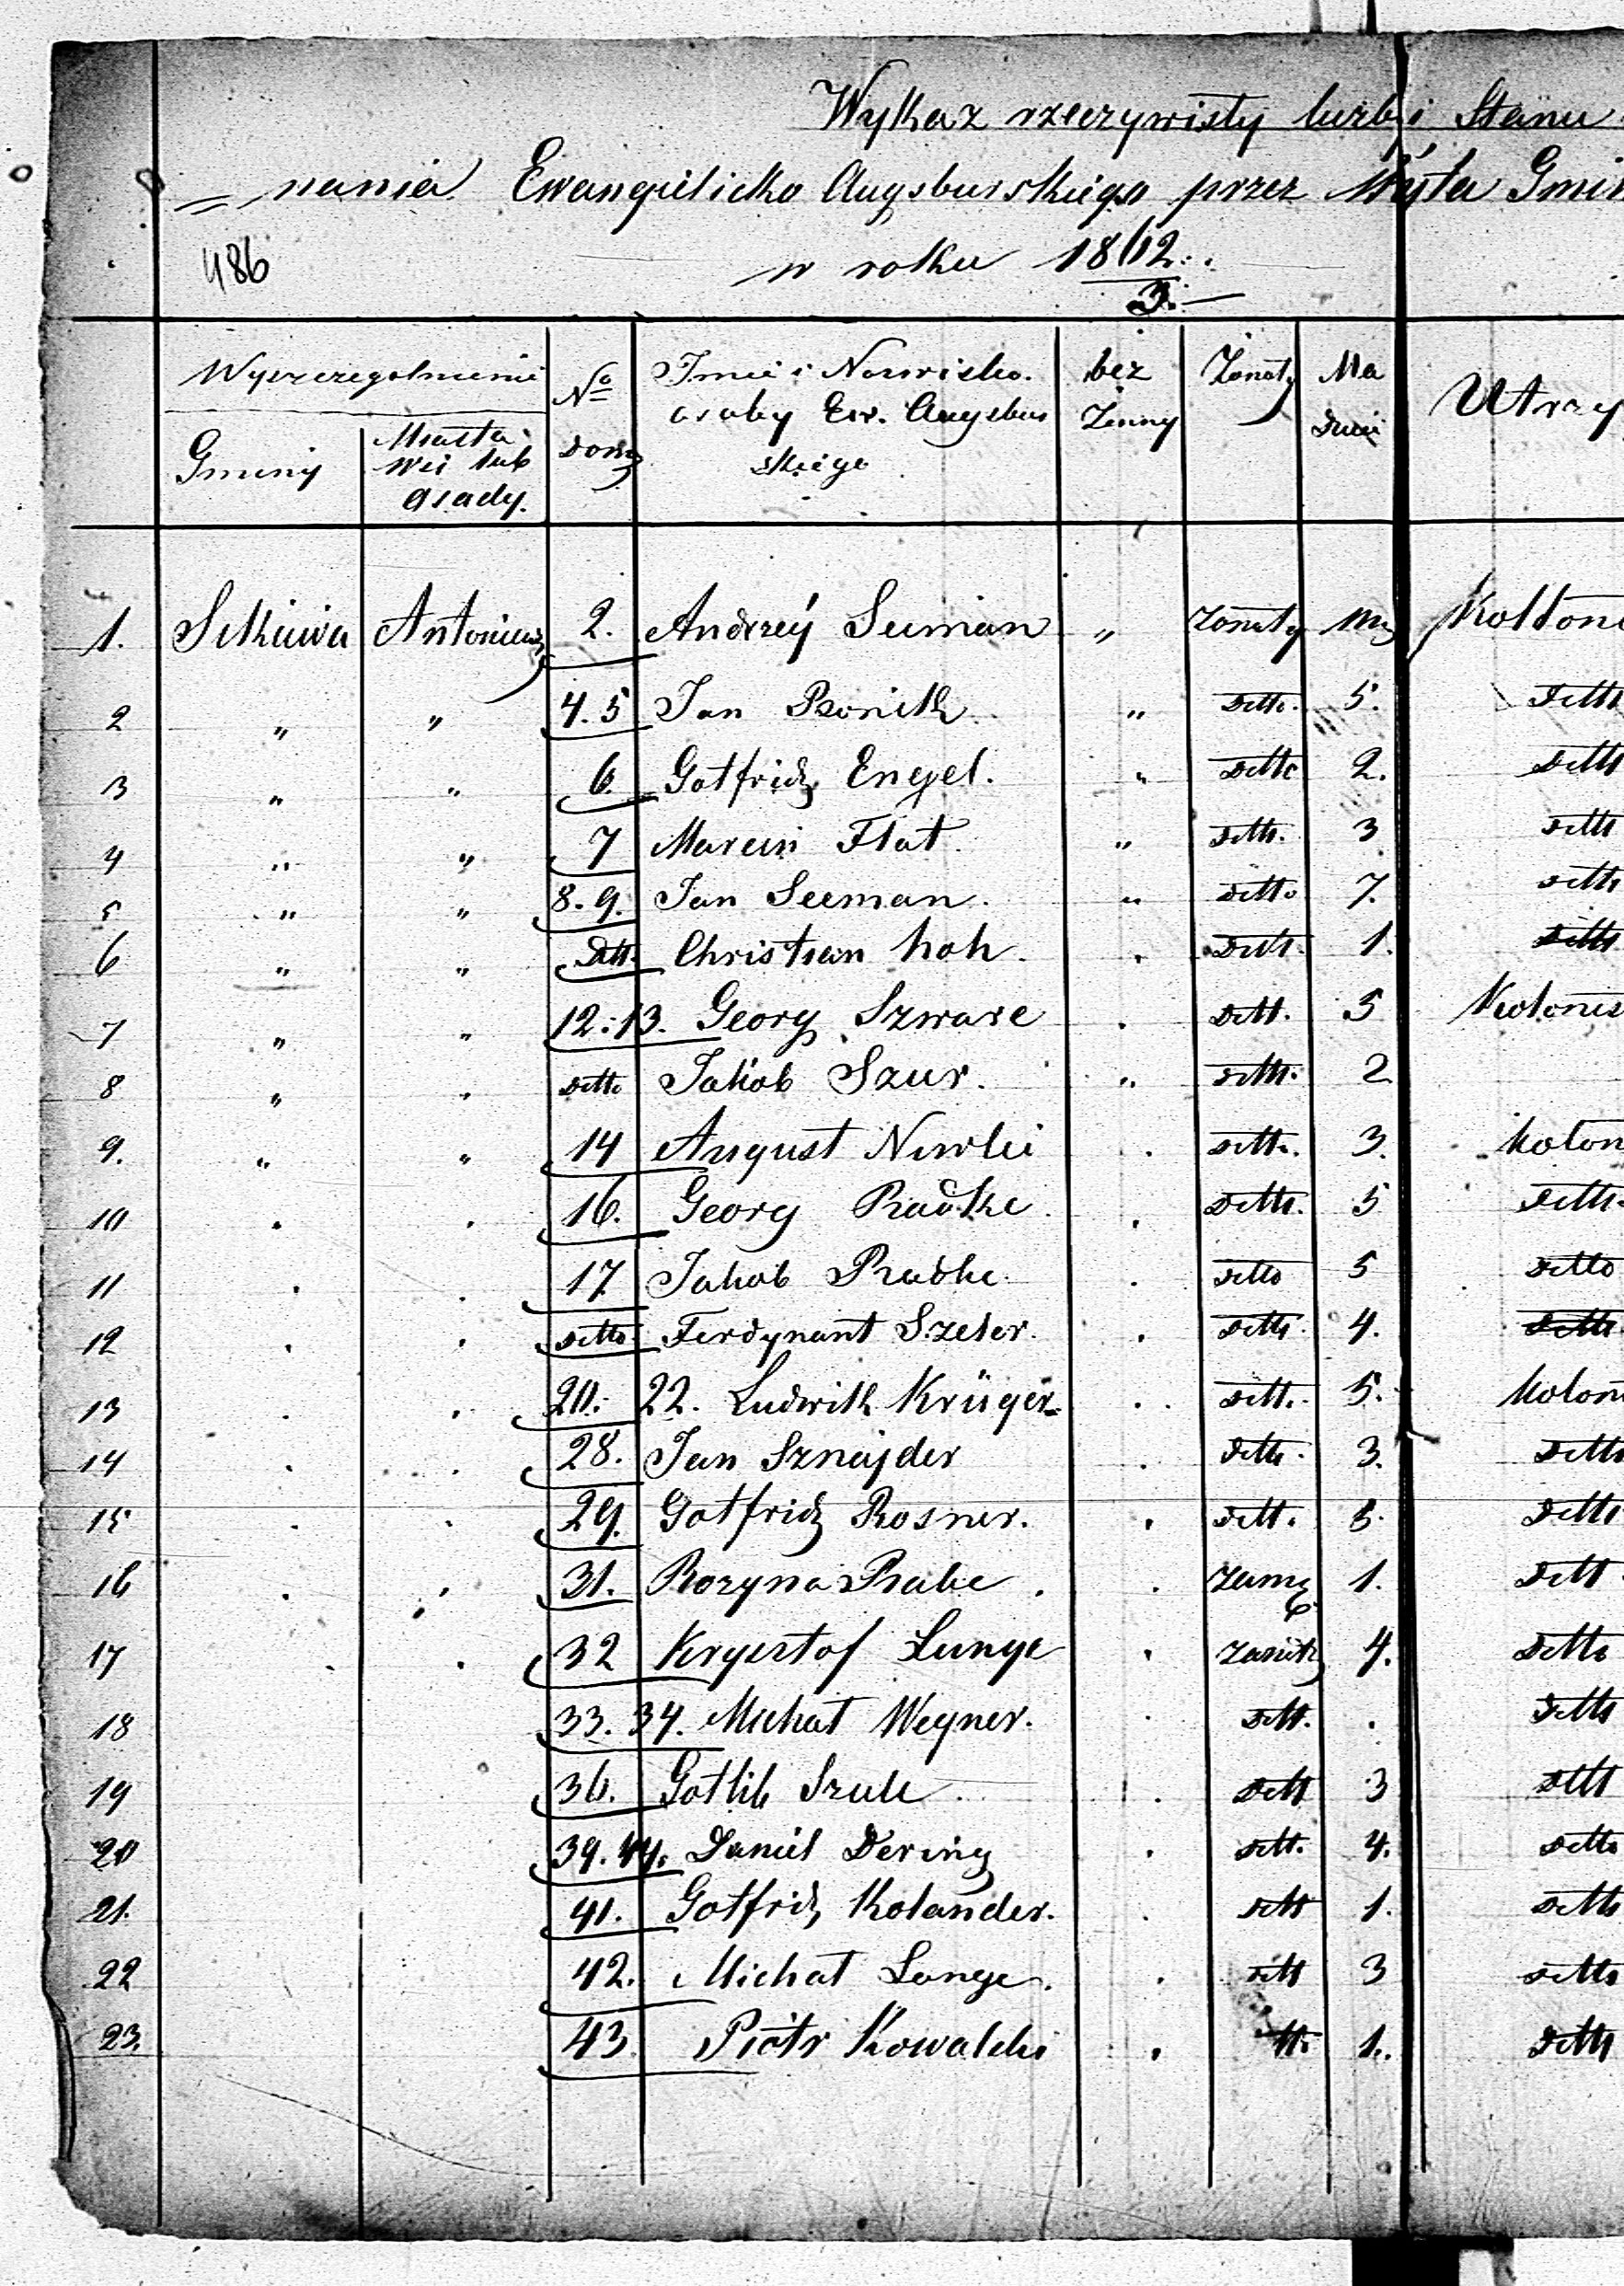 Wykaz rzeczywisty liczby i Stanu
= nania Ewangielicko Augsburskiego przez Wójta Gmin
486
w roku 1862/3.
Wyszczegolnienie
No domu
Imie i Nazwisko osoby Ew. Augsburskiego
bez Zenny
Żonaty
Ma dzieci
Utrzy
Gminy
Miasta wsi lub osady.
1. Sekiwa Antoniew 2. Andrzéy Seiman " Zonaty Ma Kolloni
2 " " 4. 5 Jan Ronik " detto. 5. detto
3 " " 6. Gotfrid Engel. " detto 2. detto
4 " " 7 Marcin Flat. " detto. 3 detto
5 " " 8. 9. Jan Seeman. " detto 7. detto
6 " " Dtt. Christian hoh. . Dett. 1. detto
7 " " 12. 13. Georg Szwarc . Dett. 5 Kolonis
8 " . detto Jakob Szur. " detto. 2
9. " " 14 August Newlei . detto. 3. kolon
10 . . 16. Georg Radke. . Detto. 5 Detto.
11 . . 17. Jakob Radke. . detto 5 detto
12 . . detto. Ferdynant Szeler. . detto. 4. detto
13 . . 20. 22. Ludwik Krüger . . dett. 5. kolon
14 . . 28. Jan Sznajder . detto. 3. detto
15 . . 29. Gotfrid Rosner. . dett. 5. detto
16 . . 31. Rozyna Rabe . . Zamę 1. Dett.
17 . . 32 Krysztof Lange . Zonaty 4. Detto
18 33. 34. Michał Wegner. . dett. . detto
19 36. Gotlib Szulc . . dett 3 dett
20 39. 44. Daniel Dering . dett. 4. detto
21. 41. Gotfrid Kolander. . dett 1. detto
22 42. Michał Lange. . dett 3 detto
23. 43. Piotr Kowalski . tt. 1. detto